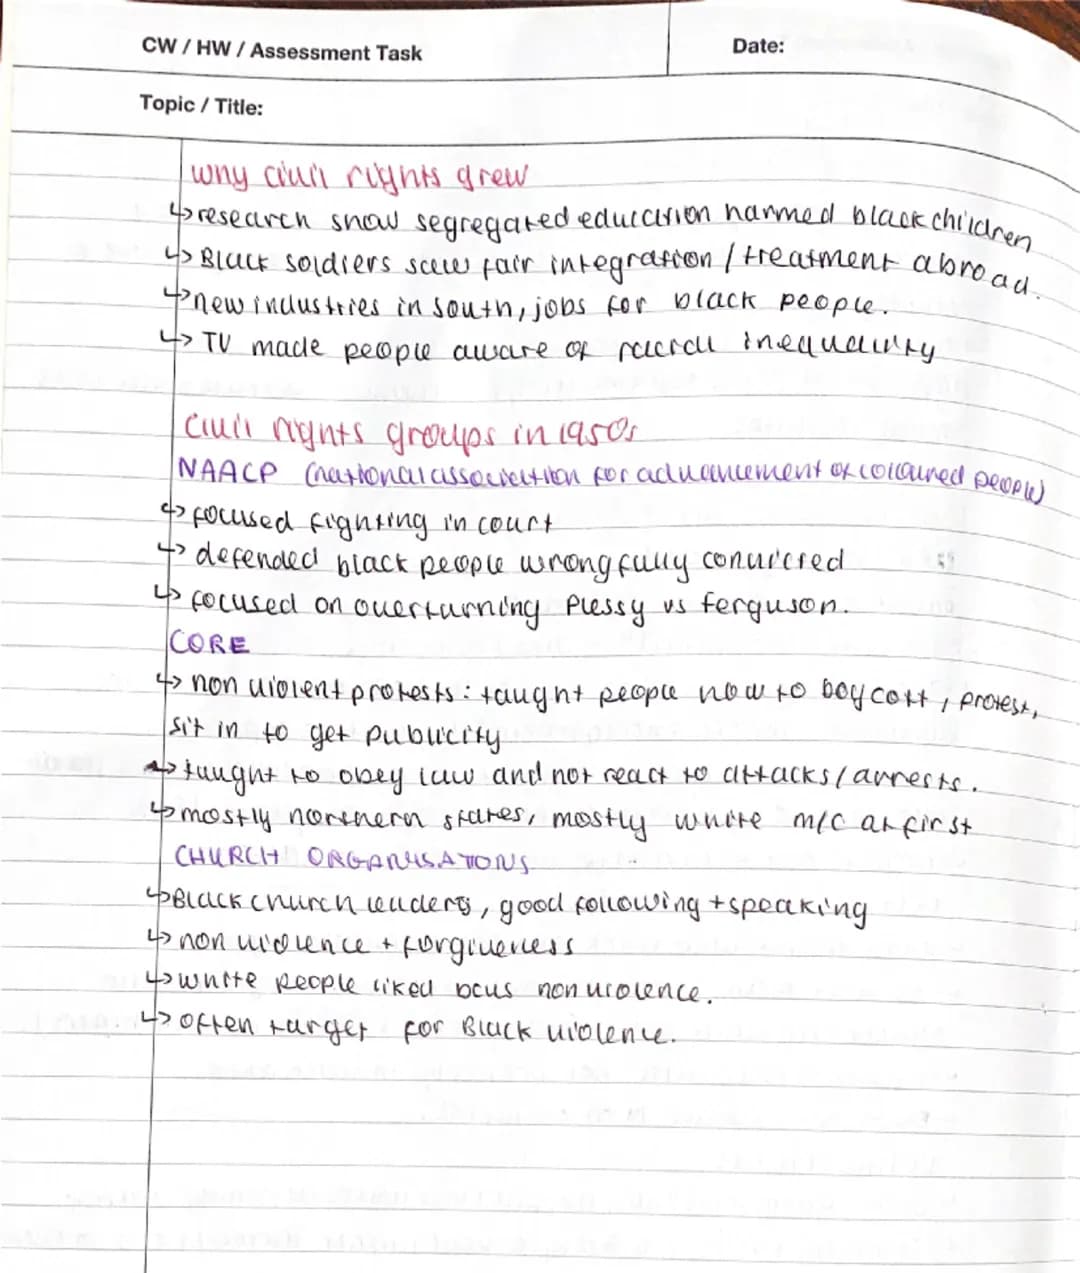 CW / HW / Assessment Task
Date:
Topic / Title:
why civil rights grew
↳ research show segregated education harmed black children
↳ Black soldiers saw fair integration / treatment abroad.
↳ new industries in south, jobs for black people.
↳ TV made people aware of racial inequality
Civil rights groups in 1950s
NAACP (national association for advancement of coloured people)
↳ focused fighting in court
↳ defended black people wrongfully convicted
↳ focused on overturning Plessy vs ferguson.
CORE
↳ non violent protests: taught people how to boycott, protest,
sit in to get publicity
↳ taught to obey law and not react to attacks/arrests.
↳ mostly northern states, mostly white m/c at first
CHURCH ORGANISATONS
↳ Black church leaders, good following + speaking
↳ non violence + forgiveness
↳ white people liked bcus nonviolence.
↳ often target for Black violence.